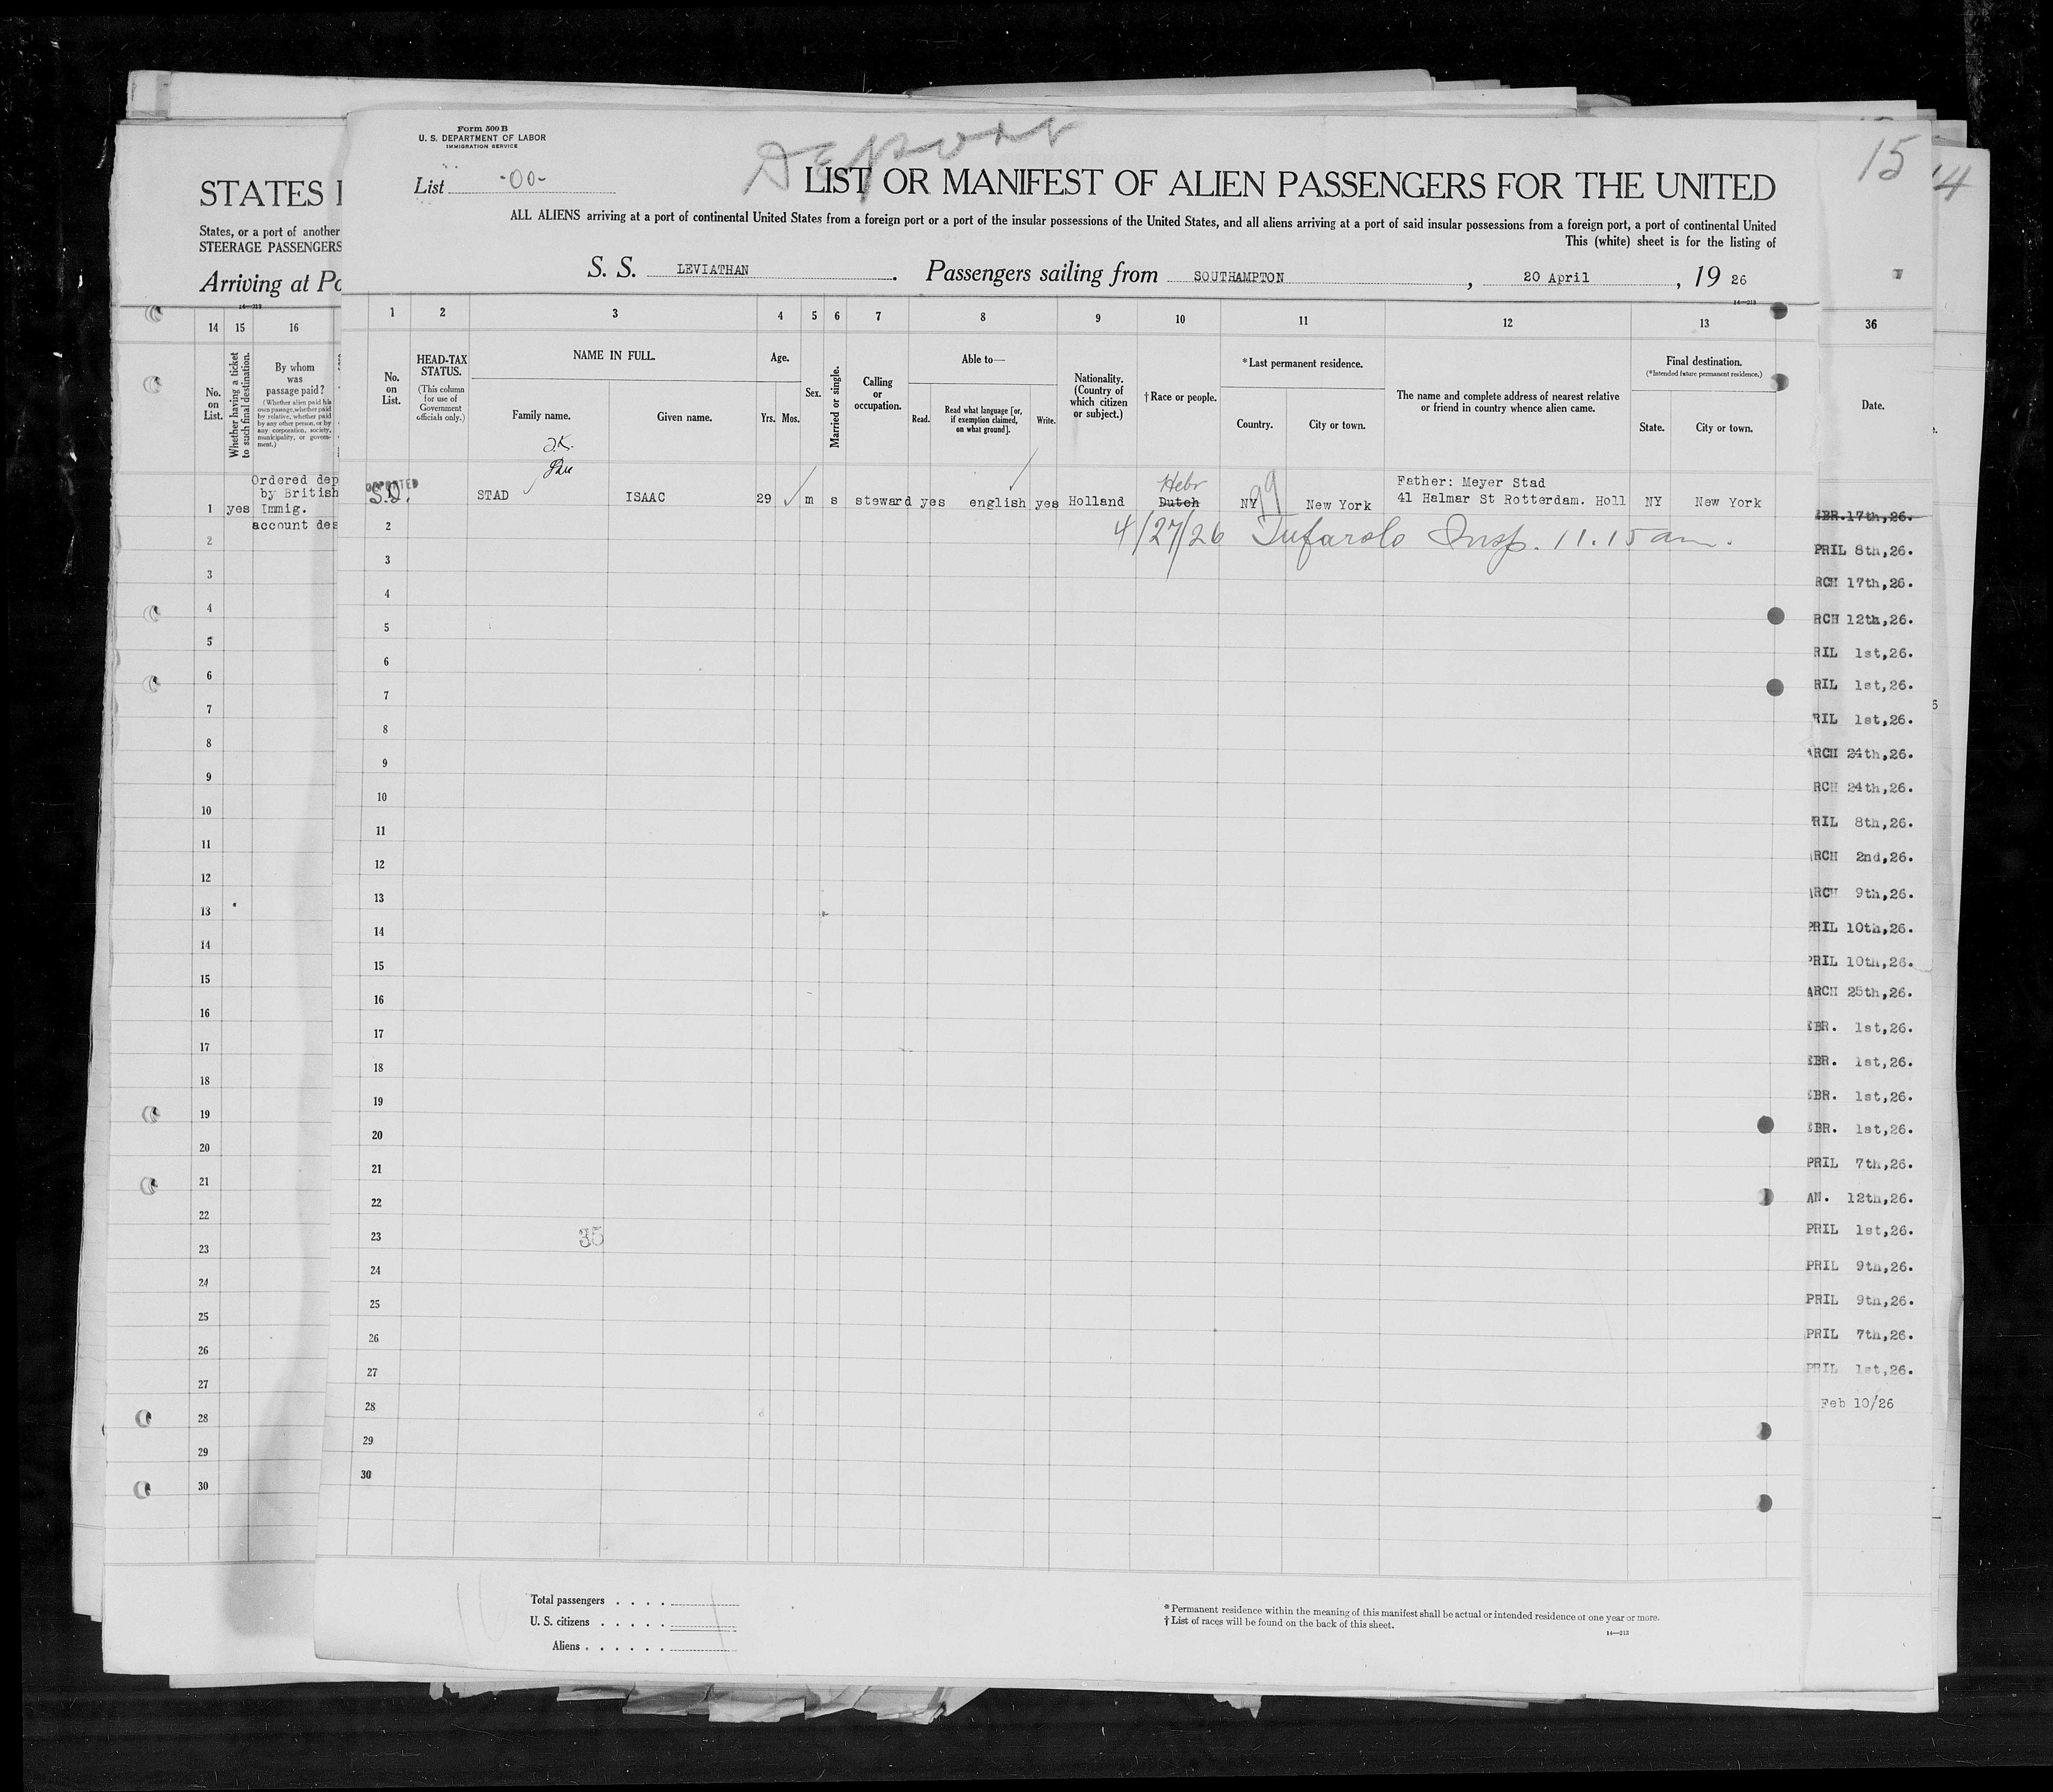 Form 500 B
U. S. DEPARTMENT OF LABOR
IMMIGRATION SERVICE
Deport
List -00-
15
14
LIST OR MANIFEST OF ALIEN PASSENGERS FOR THE UNITED
ALL ALIENS arriving at a port of continental United States from a foreign port or a port of the insular possessions of the United States, and all aliens arriving at a port of said insular possessions from a foreign port, a port of continental United
This (white) sheet is for the listing of
S. S. LEVIATHAN. Passengers sailing from SOUTHAMPTON, 20 April, 19 26
14—213
STATES
States, or a port of another
STEERAGE PASSENGERS
Arriving at Po
14—213
14 15 16
No. on List.
Whether having a ticket to such final destination.
By whom was passage paid?
(Whether alien paid his own passage, whether paid by relative, whether paid by any other person, or by any corporation, society, municipality, or government.)
Ordered dep
by British
1 yes Immig.
account des
2
3
4
5
6
7
8
9
10
11
12
13
14
15
16
17
18
19
20
21
22
23
24
25
26
27
28
29
30
1 2 3 4 5 6 7 8 9 10 11 12 13
No. on List.
HEAD-TAX STATUS.
(This column for use of Government officials only.)
NAME IN FULL.
Family name. Given name.
Age.
Yrs. Mos.
Sex.
Married or single.
Calling or occupation.
Able to—
Read. Read what language [or, if exemption claimed, on what ground]. Write.
Nationality. (Country of which citizen or subject.)
†Race or people.
*Last permanent residence.
Country. City or town.
The name and complete address of nearest relative or friend in country whence alien came.
Final destination.
(*Intended future permanent residence.)
State. City or town.
DEPORTED
S.I.
Hebr
Father: Meyer Stad
STAD ISAAC 29 m s steward yes english yes Holland Dutch NY New York 41 Halmar St Rotterdam. Holl NY New York
99
2 4/27/26 Tufarolo Insp. 11.15 am.
3
4
5
6
7
8
9
10
11
12
13
14
15
16
17
18
19
20
21
22
23 35
24
25
26
27
28
29
30
16
Total passengers . . . .
U. S. citizens . . . . .
Aliens . . . . . .
* Permanent residence within the meaning of this manifest shall be actual or intended residence of one year or more.
† List of races will be found on the back of this sheet.
14—213
36
Date.
EBR.17th,26.
PRIL 8th,26.
RCH 17th,26.
RCH 12th,26.
RIL 1st,26.
RIL 1st,26.
RIL 1st,26.
ARCH 24th,26.
RCH 24th,26.
RIL 8th,26.
ARCH 2nd,26.
ARCH 9th,26.
PRIL 10th,26.
PRIL 10th,26.
ARCH 25th,26.
EBR. 1st,26.
EBR. 1st,26.
EBR. 1st,26.
EBR. 1st,26.
PRIL 7th,26.
AN. 12th,26.
PRIL 1st,26.
PRIL 9th,26.
PRIL 9th,26.
PRIL 7th,26.
PRIL 1st,26.
Feb 10/26